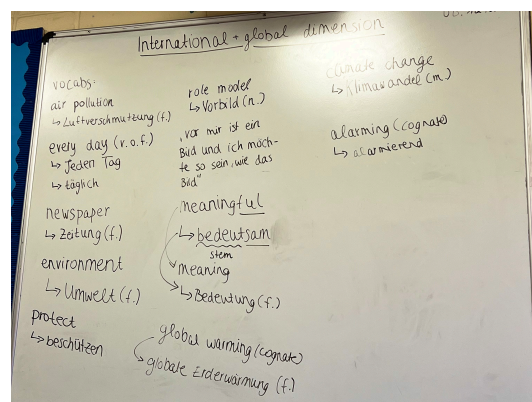 International + global dimension
vocabs:
air pollution
↳ Luftverschmutzung (f.)
every day (v.o.f.)
↳ Jeden Tag
↳ täglich
newspaper
↳ Zeitung (f.)
environment
↳ Umwelt (f.)
protect
↳ beschützen
role model
↳ Vorbild (n.)
„vor mir ist ein
Bild und ich möch-
te so sein, wie das
Bild"
meaningful
↳ bedeutsam
stem
meaning
↳ Bedeutung (f.)
global warming (cognate)
↳ globale Erderwärmung (f.)
climate change
↳ Klimawandel (m.)
alarming (cognate)
↳ alarmierend